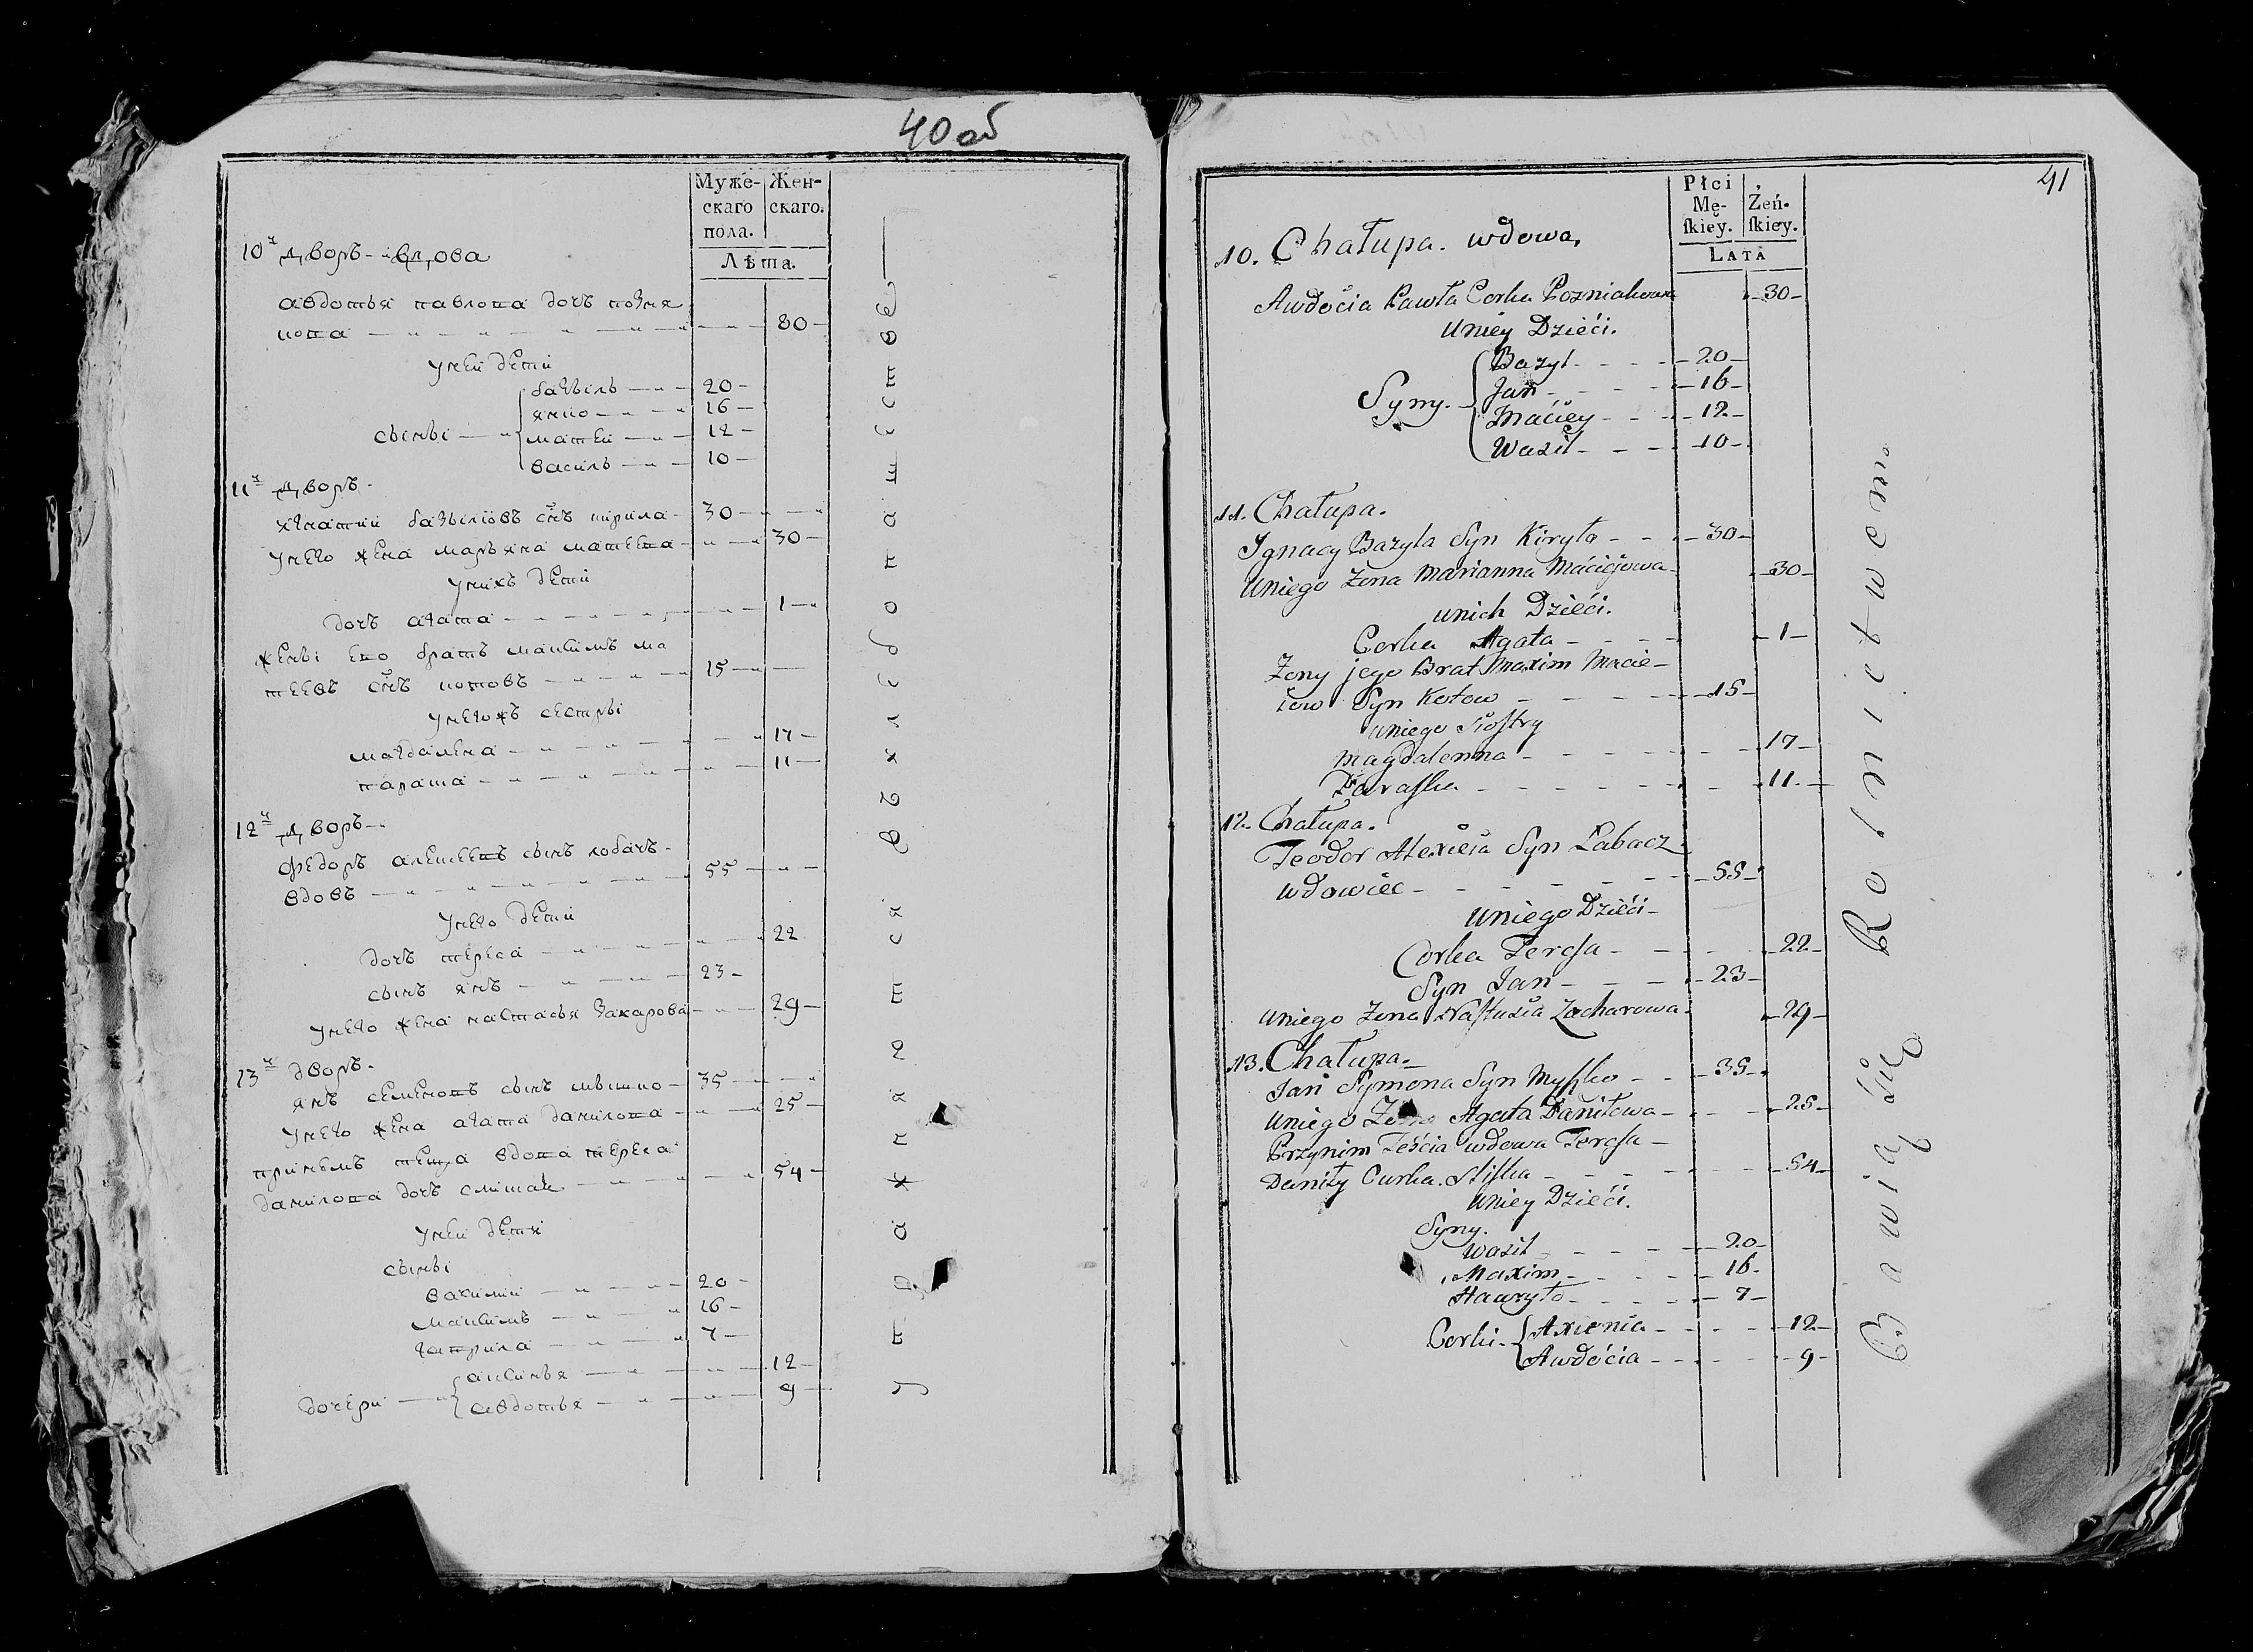 40 об
Муже-
скаго
пола.
Жен-
скаго.
Лѣта.
10й дворъ - вдова
авдотья павлова дочь позня
кова 80
у ней дети
базыль 20
янко 16
сыны
матеи 12
василь 10
11й дворъ
игнатии базылювъ снъ кирила 30
у него жена марьяна матеева 30
у нихъ дети
дочь агата 1
жены ево братъ максимъ ма
теевъ снъ котовъ 15
у негожъ сестры
магдалена 17
параша 11
12й дворъ
федоръ алексеевъ сынъ лобачъ
вдовъ 55
у него дети
дочь тереса 22
сынъ янъ 23
у него жена настасья захарова 29
13й дворъ
янъ семеновъ сынъ мышко 35
у него жена агата данилова 25
при немъ теща вдова тереса
данилова дочь 54
у ней дети
сыны
20
максимъ 16
гаврила 7
дочери
аксинья 12
авдотья 9
41
Płci
Mę-
skiey.
Żeń-
skiey.
LATA
10. Chałupa. wdowa.
Awdocia Pawła Corka Pozniakowa 30
Uniey Dzieći.
Bazyl 20
Jan 16
Syny.
Maciey 12
Wasil 10
11. Chałupa.
Ignacy Bazyla Syn Kiryło 30
Uniego Żona Marianna Maciejowa 30
unich Dzieći.
Corka Agata 1
Żony jego Brat Maxim Macie-
iow Syn Kotow 15
uniego Siostry
Magdalenna 17
Paraska 11
12. Chałupa.
Teodor Alexieia Syn Labacz
wdowiec 55
Uniego Dzieći
Corka Teresa 22
Syn Jan 23
Uniego Żona Nastusia Zacharowa 29
13. Chałupa
Jan Symona Syn Myszko 35
Uniego Żona Agata Daniłowa 25
Przynim Teścia wdowa Teresa
Daniły Curka 54
Uniey Dzieći.
Syny.
Wasil 20
Maxim 16
Hawryło 7
Corki
Axienia 12
Awdocia 9
Bawią się Rolnictwem.